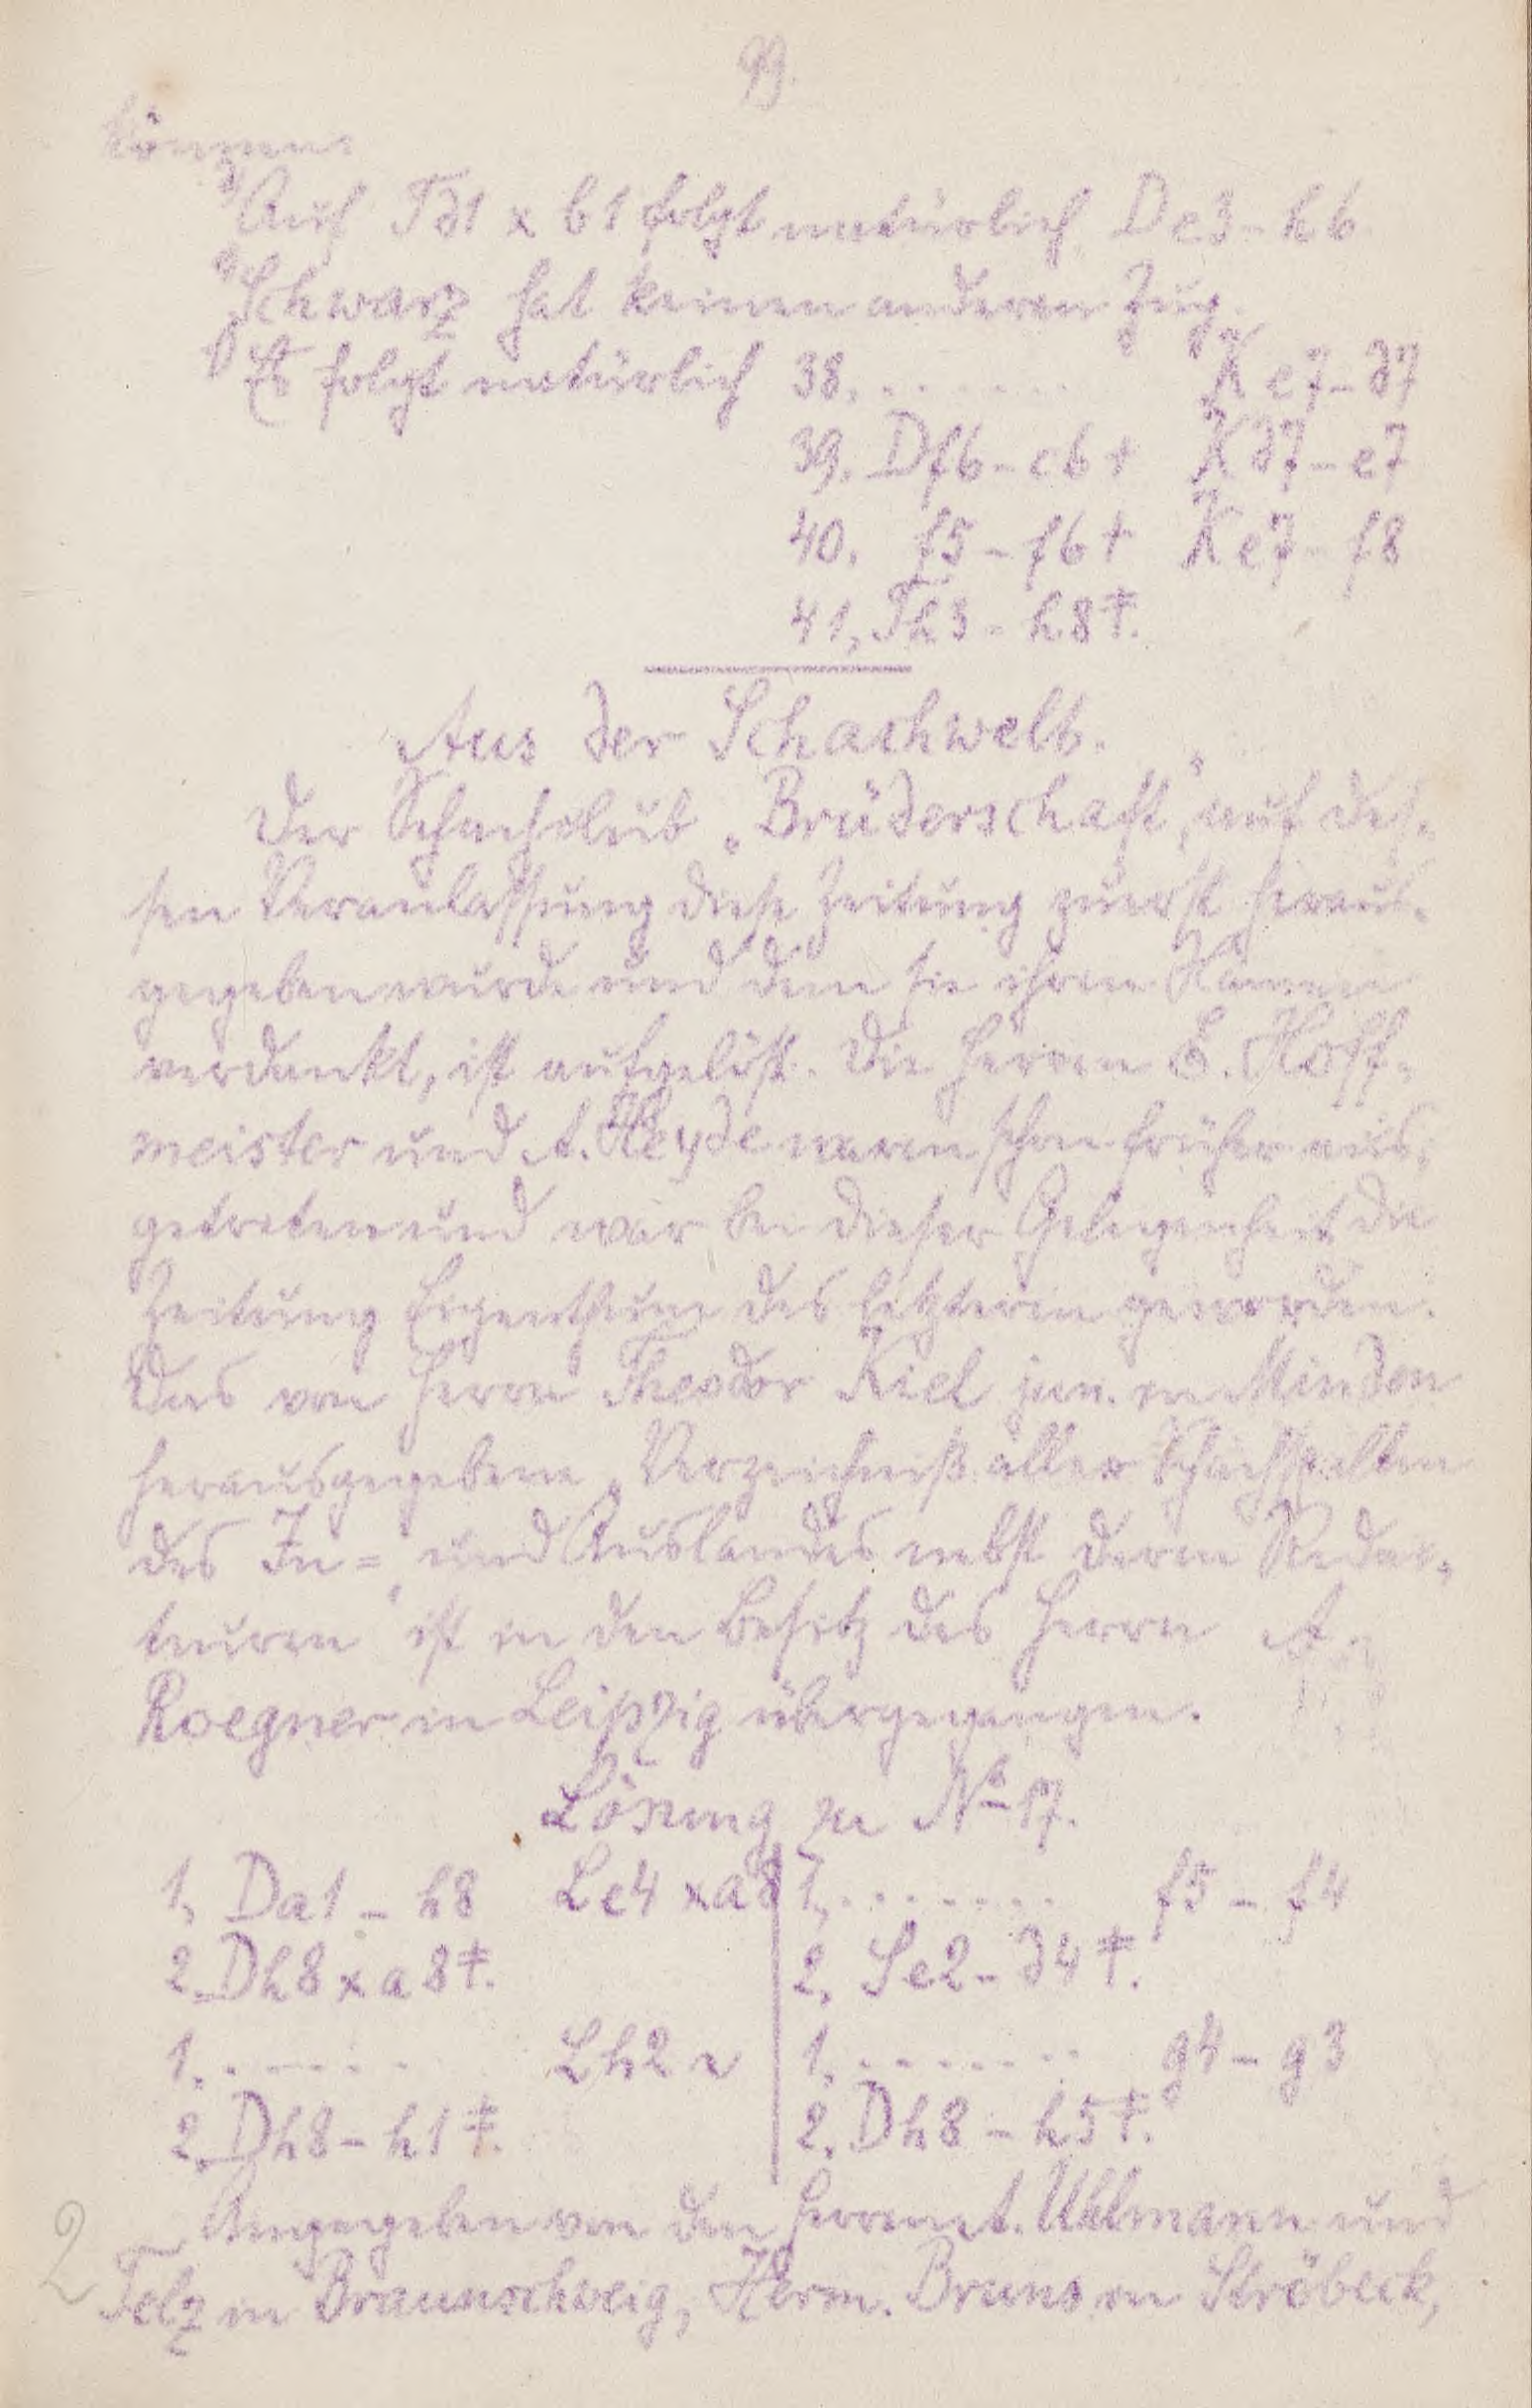 99.
können.
d) Auf Td1 x b1 folgt natürlich De3-h6.
e) Schwarz hat keinen anderen Zug.
f) Es folgt natürlich 38. . . . . . . Ke7-d7
39. Df6-c6† Kd7-e7
40. f5-f6† Ke7-f8
41, Th3-h8‡.
Aus der Schachwelt.
Der Schachclub „Brüderschaft", auf des-
sen Veranlassung diese Zeitung zuerst heraus-
gegeben wurde und dem sie ihren Namen
verdankt, ist aufgelöst. Die Herren E. Hoff-
meister und A. Heyde waren schon früher aus-
getreten und war bei dieser Gelegenheit die
Zeitung Eigenthum des letzteren geworden.
Das von Herrn Theodor Kiel jun. in Minden
herausgegebene „Verzeichniß aller Schachspalten
des In= und Auslandes nebst deren Redac-
teuren" ist in den Besitz des Herrn A.
Roegner in Leipzig übergegangen.
Lösung zu No 17.
1, Da1-h8 Le4 x a8 1, . . . . . . . f5-f4
2. Dh8 x a8‡. 2, Se2-d4‡.
1. . . . . . . Lh2 ~ 1, . . . . . . . g4-g3
2. Dh8-h1‡. 2. Dh8-h5‡.
Angegeben von den Herren A. Uhlmann und
Telz in Braunschweig, Herm. Bruns in Ströbeck,
2